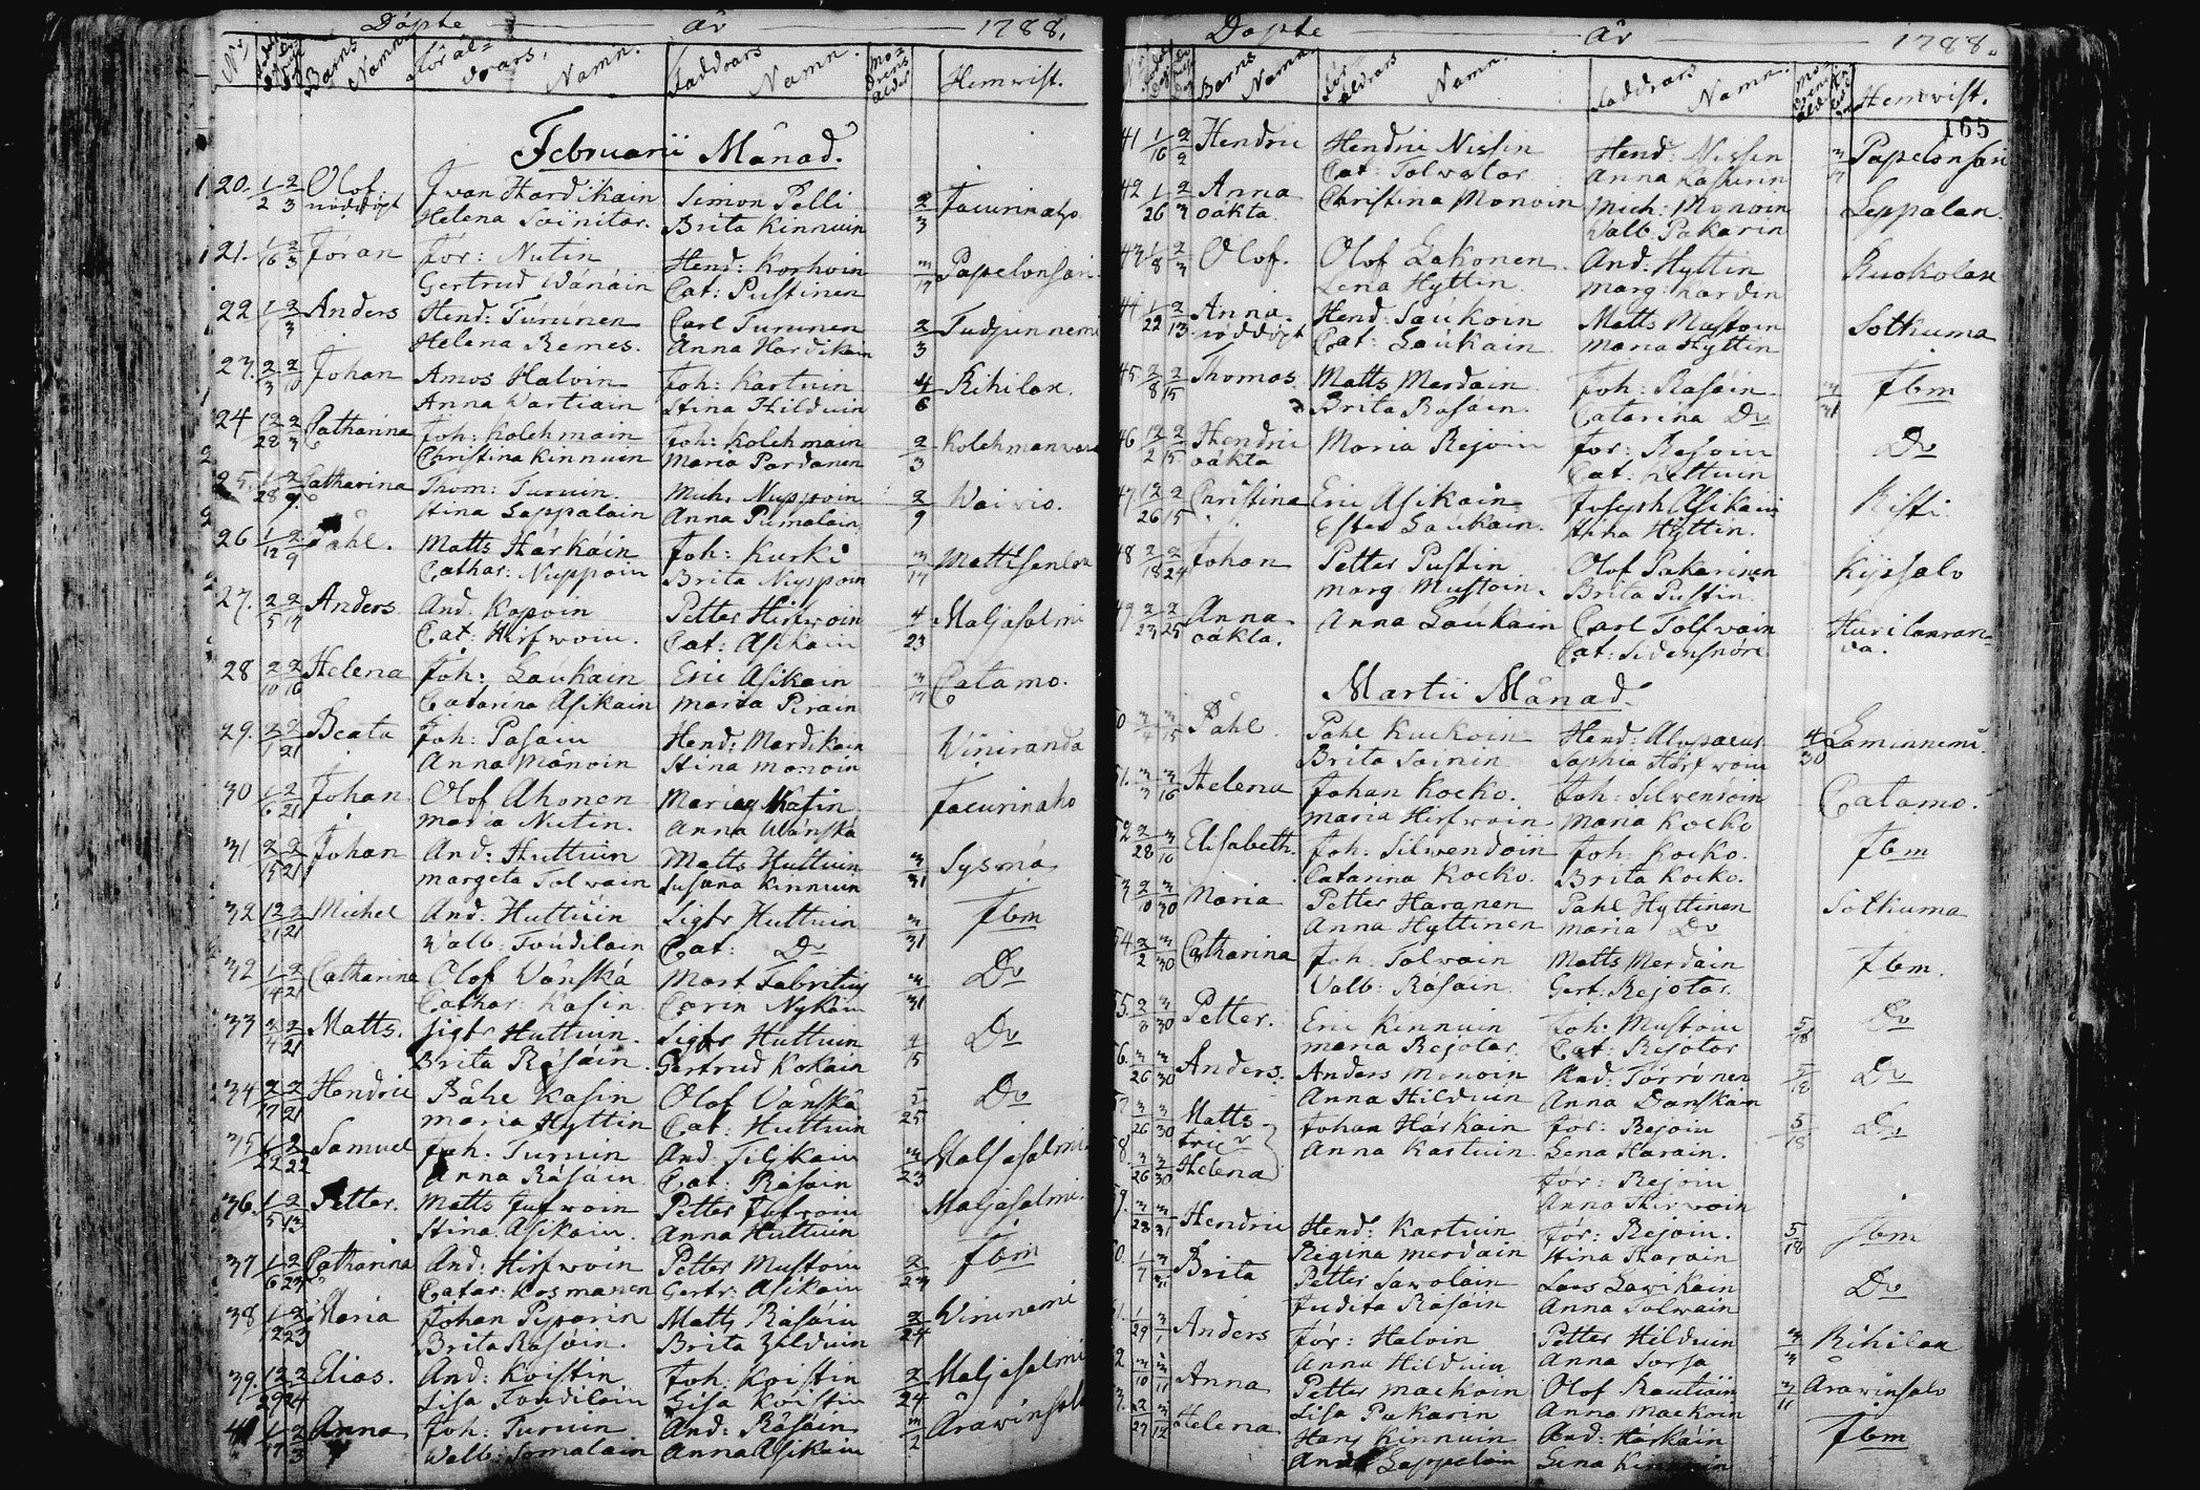 Döpte år 1788.
N:o Barns Namn Föräldrars Namn. Faddrars Namn. Modrens ålder Hemvist.
Februarii Månad.
20. 1/2 2/3 Olof Ivan Hardikain Simon Pelli 2/3 Jaeurinaho
nöddöpt Helena Soinitar. Brita Kinnuin
21. 1/16 2/3 Jöran Jör: Nutin Hend: Korhoin 3/17 Papelonsari
Gertrud Wänäin Cat: Pustinen
22 Anders Hend: Turunen Carl Turunen 2/3 Tudjunnemi
Helena Remes. Anna Hardikain
23. 2/3 2/10 Johan Amos Halvin Joh: Kartuin 4/6 Rihilax.
Anna Wartiain Stina Hilduin
24 12/28 2/3 Catharina Joh: Kolehmain Joh: Kolehmain 2/3 Kolehmanvara
Christina Kinnuen Maria Pardanen
25. 1/28 2/9 Catharina Thom: Turuin. Mich. Nuppoin 2/9 Waivio.
Stina Lappalain Anna Pumalain
26 1/12 2/9 Påhl. Matts Härkäin Joh: Kurki 3/17 Mattisenlax
Cathar: Nuppoin Brita Nuppoin
27. 2/5 2/17 Anders And. Kapoin Petter Hirfwoin 4/23 Maljasalmi
Cat: Hirfwoin. Cat: Asikain
28 2/10 2/16 Helena Joh: Laukain Eric Asikain 3/17 Catamo.
Catarina Asikain Maria Pirain
29. 2/1 2/21 Beata Joh: Pasain Hend: Mardikain Winiranda
Anna Månoin Stina Monoin
30 1/6 2/21 Johan Olof Ahonen Katin Jaeurinaho
Maria Nutin. Anna Wänskä
31 2/15 2/21 Johan And: Huttuin Matts Huttuin 3/31 Sysmä
Margeta Tolvain Susana Kinnuin
32 12/21 2/21 Michel And: Huttuin Sigfr Huttuin 3/31 Ibm
Walb: Toudilain Cat: Do
32 1/14 2/21 Catharina Olof Wänskä Mart Fabritius 3/31 Do
Cathar: Kasin Carin Nykäin
33 2/4 2/21 Matts. Sigfr Huttuin. Sigfr Huttuin 4/15 Do
Brita Räsäin. Gertrud Kokain
34 2/17 2/21 Hendric Påhl Kasin Olof Vänskä 5/25 Do
Maria Hyttin Cat: Huttuin
35 2/22 Samuel Joh. Turuin And Tiljkain 3/23 Maljasalmi
Anna Räsäin Cat: Räsäin
36. 1/5 2/13 Petter. Matts Jufwoin Petter Jufwoin Maljasalmi
Stina Asikain. Anna Huttuin
37 1/6 2/23 Catharina And: Hirfwoin Petter Mustoin 2/23 Ibm
Catar: Kosmanen Gertr: Asikain
38 1/12 2/23 Maria Johan Piparin Matts Räsäin 2/24 Wininemi
Brita Räsäin. Brita Hilduin
39. 12/29 2/24 Elias. And: Koistin Joh: Koistin 2/24 Maljasalmi
Lisa Toudilain Lisa Koistin
Anna Joh: Turuin And: Räsäin 3/2 Arawinsalo
Walb: Somalain Anna Asikain
Döpte år 1788.
Barns Namn Föräldrars Namn. Faddrars Namn. Hemvist.
165
41 1/16 2/2 Hendric Hendric Nissin Hend: Nissen 3/17 Papelonsari
Cat: Tolvatar Anna Kasurin
42 1/26 2/3 Anna Christina Monoin Mich: Monoin Leppälax.
oäkta. Walb: Pakarin
43 1/8 2/3 Olof. Olof Lakonen And: Hyttin Kuokolax
Lena Hyttin. Marg: Kardin
44 1/22 2/13 Anna Hend: Laukain Matts Mustoin Sotkuma
nöddöpt Cat: Laukain Maria Hyttin
45. 2/8 2/15 Thomas Matts Merdain Joh: Rasäin 3/31 Ibm
Brita Räsäin. Catarina Do
46 12/2 2/15 Hendric Maria Rejoin Jör: Rejoin Do
oäkta Cat: Kettuin
47. 12/26 2/15 Christina Eric Asikain Joseph Asikain Risti
Ester Laukain. Stina Hyttin.
48 2/18 2/24 Johan Petter Pustin Olof Pakarinen Kyssalo
Marg: Mustoin. Brita Pustin
49 2/23 2/25 Anna Anna Laukain Carl Tolfvain Hurilanran=
oäkta. Cat: Sidensnöre da.
Martii Månad.
50 3/4 3/15 Påhl Påhl Kuckoin Hend: Alopaeus 4/30 Laminnemi
Brita Soinin Sophia Hirfwoin
51. 3/3 3/16 Helena Johan Kocko. Joh: Silwenöin Catamo.
Maria Hirfwoin Maria Kocko
52 2/28 3/16 Elisabeth. Joh. Silwendoin Joh. Kocko. Ibm
Catarina Kocko. Brita Kocko.
53 2/10 3/30 Maria Petter Haranen Påhl Hyttinen Sotkuma
Anna Hyttinen Maria Do
54 2/2 3/30 Catharina Joh. Tolvain Matts Merdain Ibm.
Valb: Räsäin. Gert: Rejotar.
55. 2/8 3/30 Petter. Eric Kinnuin Joh: Mustoin 5/18 Do
Maria Rejotar. Cat: Rejotar
56. 3/26 3/30 Anders. Anders Monoin And: Törrönen 5/18 Do
Anna Hilduin Anna Danskain
57 3/26 3/30 Matts Johan Härkäin Jör: Rejoin 5/18 Do
Anna Kartuin Lena Harain.
58. 3/26 3/30 Helena Jör: Rejoin
Anna Hirvoin
59. 3/28 3/31 Hendric Hend: Kartuin Jör: Rejoin. 5/18 Ibm
Regina Merdain Stina Harain
60. Brita Petter Sawolain Lars Lawikain Do
Judita Räsäin Anna Tolwain
1/29 3/1 Anders Jör: Halvin Petter Hilduin 3/3 Rihilax
Anna Hilduin Anna Sorsa
3/10 3/11 Anna Petter Mackoin Olof Rautiain 3/11 Arawinsalo
Lisa Pakarin Anna Mackoin
2/27 3/12 Helena Hans Kinnuin And: Härkäin Ibm
Lappalain Lena